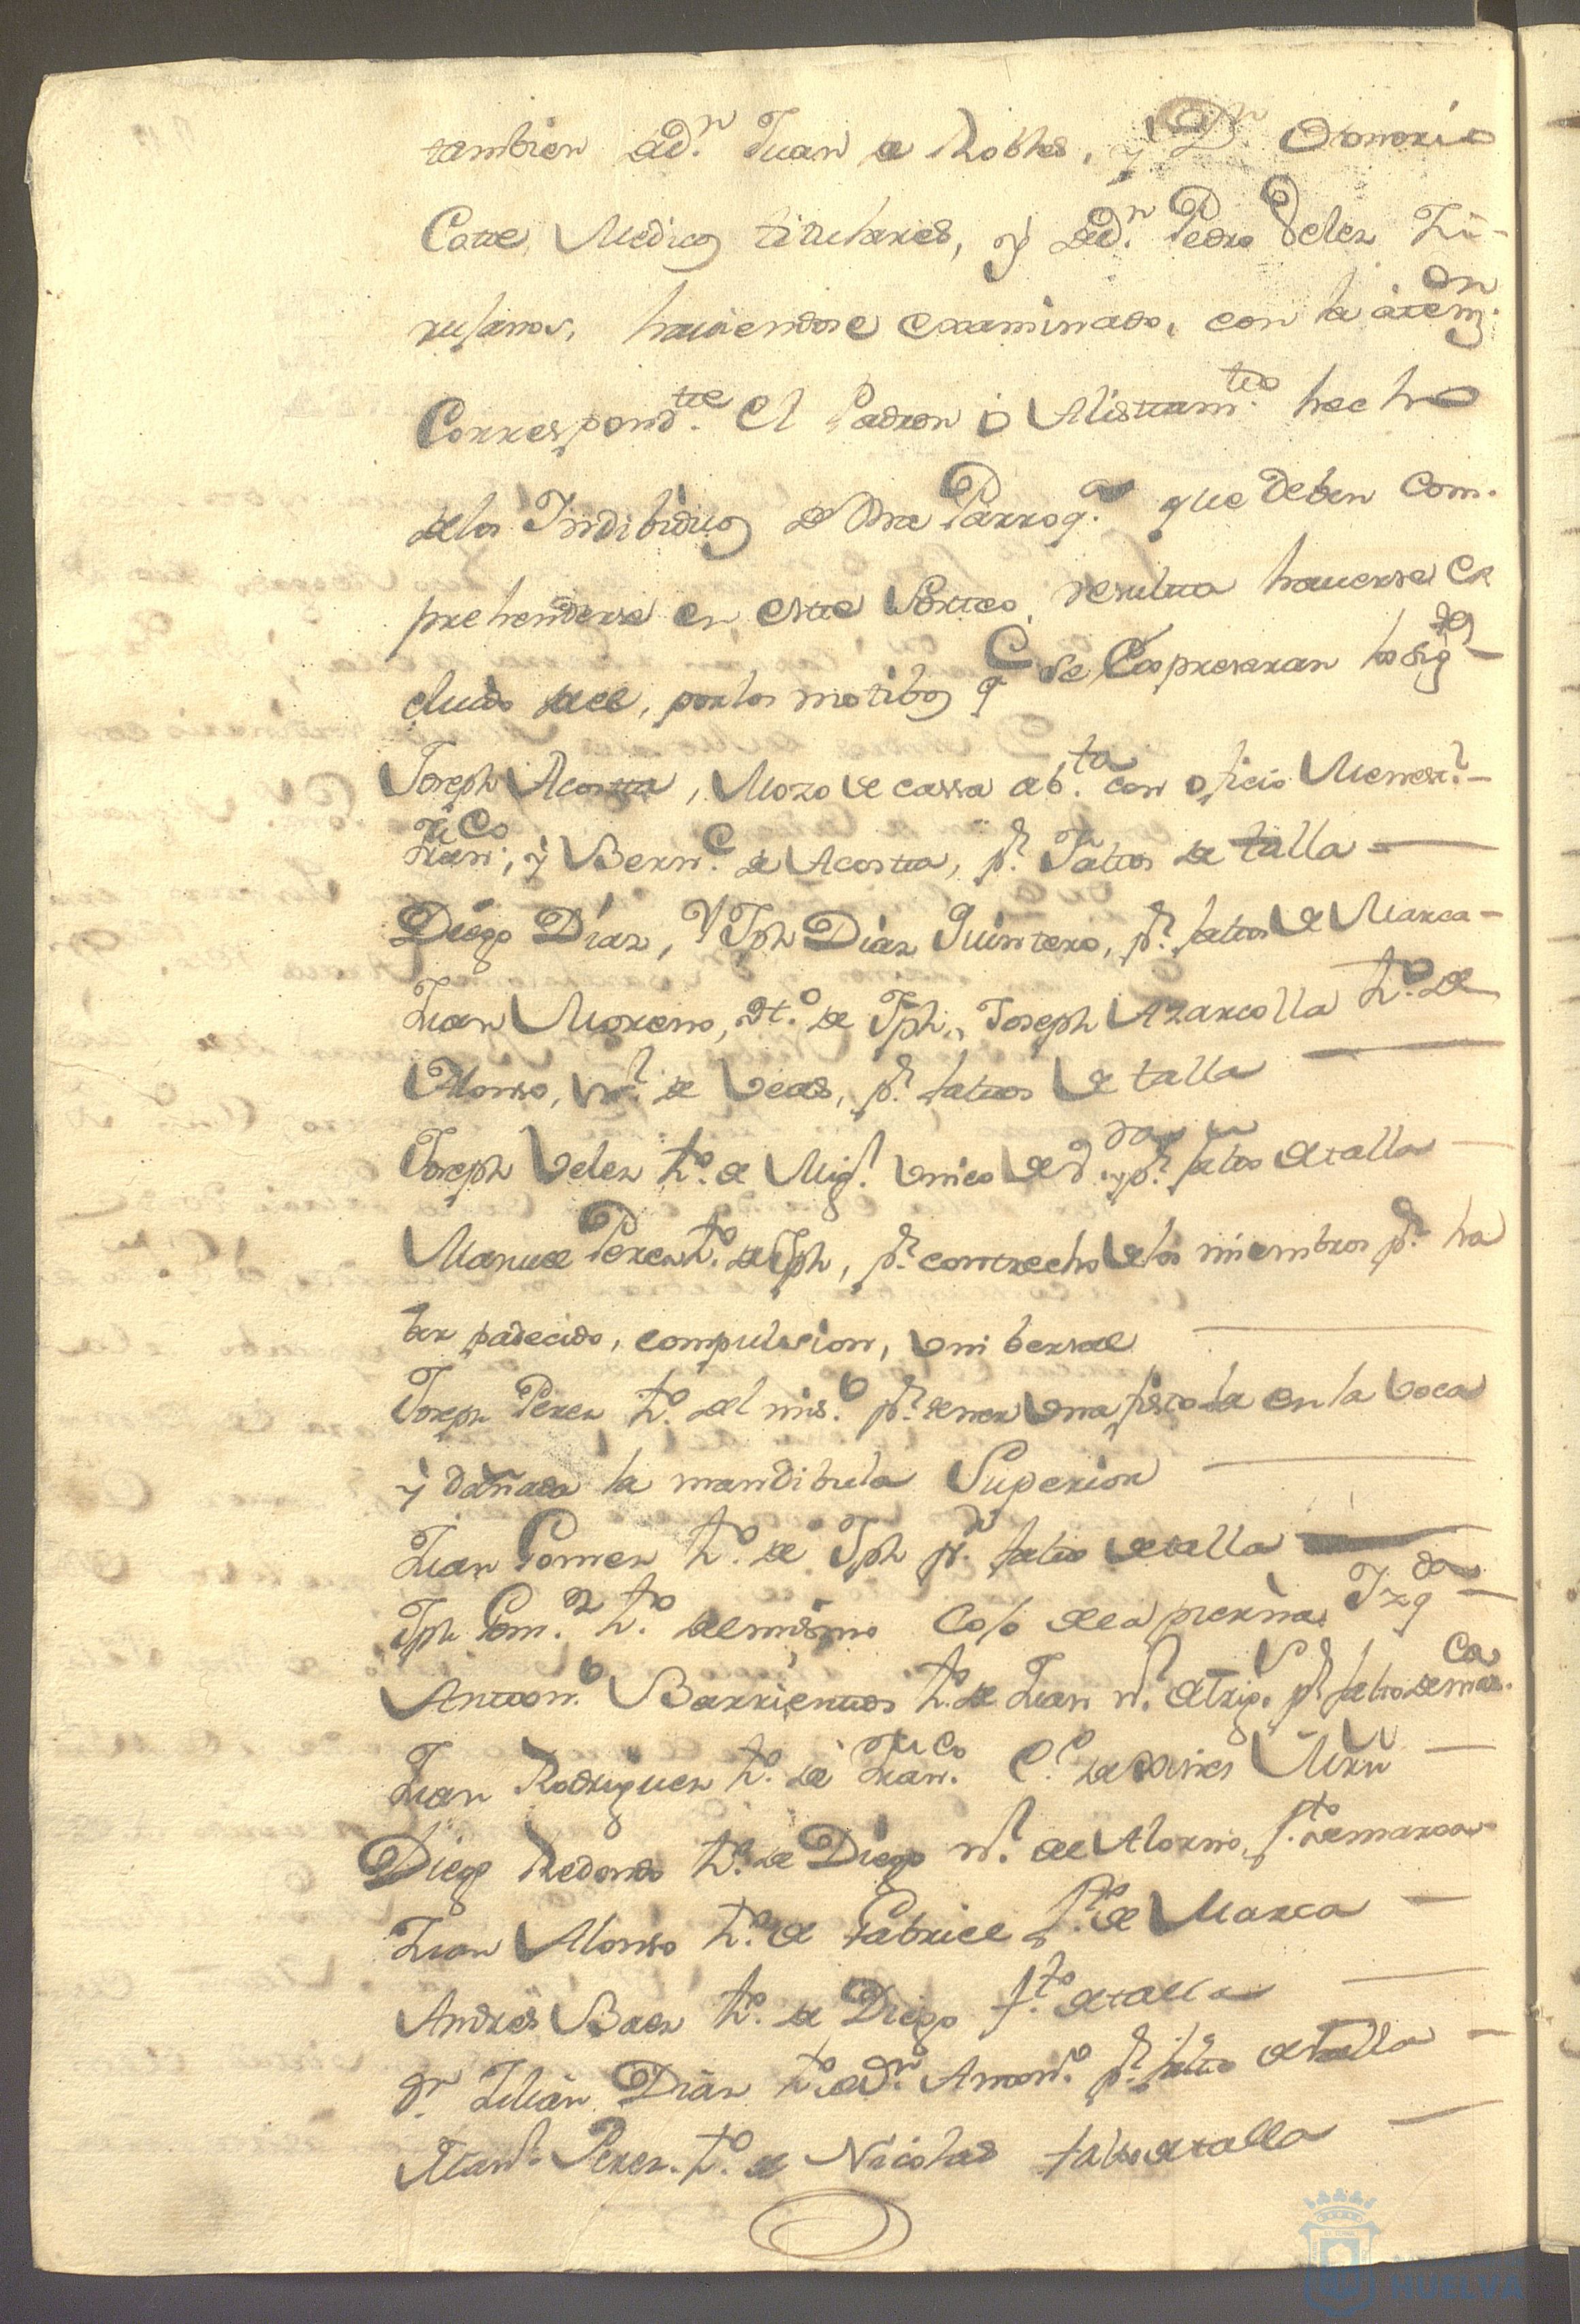 tambien ad.n Juan de Robles, y D.n Onorio
Catre Medicos titulares, y ad.n Pedro Velez Zi-
rujanos, haviendose examinado, con la atem.on
Correspond.tte el Padron ò Alistam.tto hecho
delos Indibiduos de dha Parroq.a que deben Com-
prehenderse en este Sorteo, resulta haverse ex
cluido de el, por los motibos q.e se Expresaran los sig.tes
Joseph Acosta, Mozo de cassa ab.ta con oficio Menest.l
Fran.co, y Bern.e de Acosta, p.r faltos de talla
Diego Diaz, y Jph Diaz Quintero, p.r faltos de Marca
Juan Moreno, de Jph, Joseph Azarcolla h.o de
Alonso, n.l de Veas, p.r faltos de talla
Joseph Velez h.o de Mig.l Unico de p.r falto de talla
Manuel Perez h.o de Jph, p.r contrecho de los miembros p.r ha
ber padecido, compulsion, Unibersal
Joseph Perez h.o del mis.o p.r tener Una fistola en la Voca
y dañada la mandibula Superior
Juan Gomez h.o de Jph p.r falto de talla
Jph Gom.z h.o del mismo Cojo de la pierna Izq.da
Anton.o Barrientos h.o de Juan n.l de Trig.s p.r falto de marca
Juan Rodriguez h.o de Fran.co
Diego Redondo h.o de Diego n.l de Alosno, f.to de marca
Juan Alonso h.o de Gabriel f.to de Marca
Andres Baez h.o de Diego f.to de talla
D.n Julian Diaz h.o de D.n Anton.o p.r falto de talla
Man.l Perez h.o de Nicolas falto de talla
HUELVA